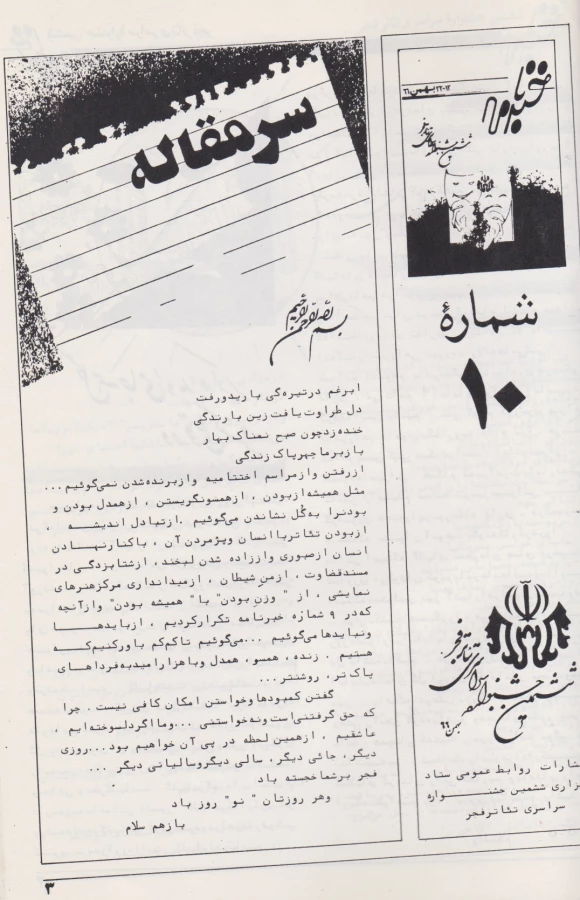 خبرنامه
۱۲-۲۲ بهمن ۶۶
شمارهٔ
۱۰
ششمین جشنواره سراسری تئاتر فجر
بهمن ۶۶
انتشارات روابط عمومی ستاد
برگزاری ششمین جشنــــواره
سراسری تئاتر فجر
سرمقاله
بسم الله الرحمن الرحیم
ابرغم درتیره‌گی باریدورفت
دل طراوت یافت زین بارندگی
خنده‌زدچون صبح نمناک بهار
بازبرماچهرپاک زندگی
ازرفتن وازمراسم اختتامیه وازبرنده‌شدن نمی‌گوئیم...
مثل همیشه‌ازبودن ، ازهمسونگریستن ، ازهمدل بودن و
بودنرا به‌گل نشاندن می‌گوئیم .ازتبادل اندیشــه ،
ازبودن تئاترباانسان وپژمردن آن ، باکنارنهـــادن
انسان ازصبوری واززاده شدن لبخند، ازشتابزدگی در
مسندقضاوت ، ازمنِ شیطان ، ازمیدانداری مرکزهنرهای
نمایشی ، از " وزن بودن" با" همیشه بودن" وازآنچه
که‌در ۹ شماره خبرنامه تکرارکردیم ، ازبایدهـــا
ونبایدهامی‌گوئیم ...می‌گوئیم تاکم‌کم باورکنیم‌کــه
هستیم . زنده، همسو، همدل وباهزارامیدبه‌فرداهای
پاک‌تر، روشنتر...
گفتن کمبودهاوخواستن امکان کافی نیست . چرا
که حق گرفتنی‌است‌ونه‌خواستنی ...ومااگردلسوخته‌ایم ،
عاشقیم . ازهمین لحظه در پی آن خواهیم بود...روزی
دیگر، جائی دیگر، سالی دیگروسالیانی دیگر ...
فجر برشماخجسته باد
وهر روزتان " نو" روز باد
بازهم سلام
۳